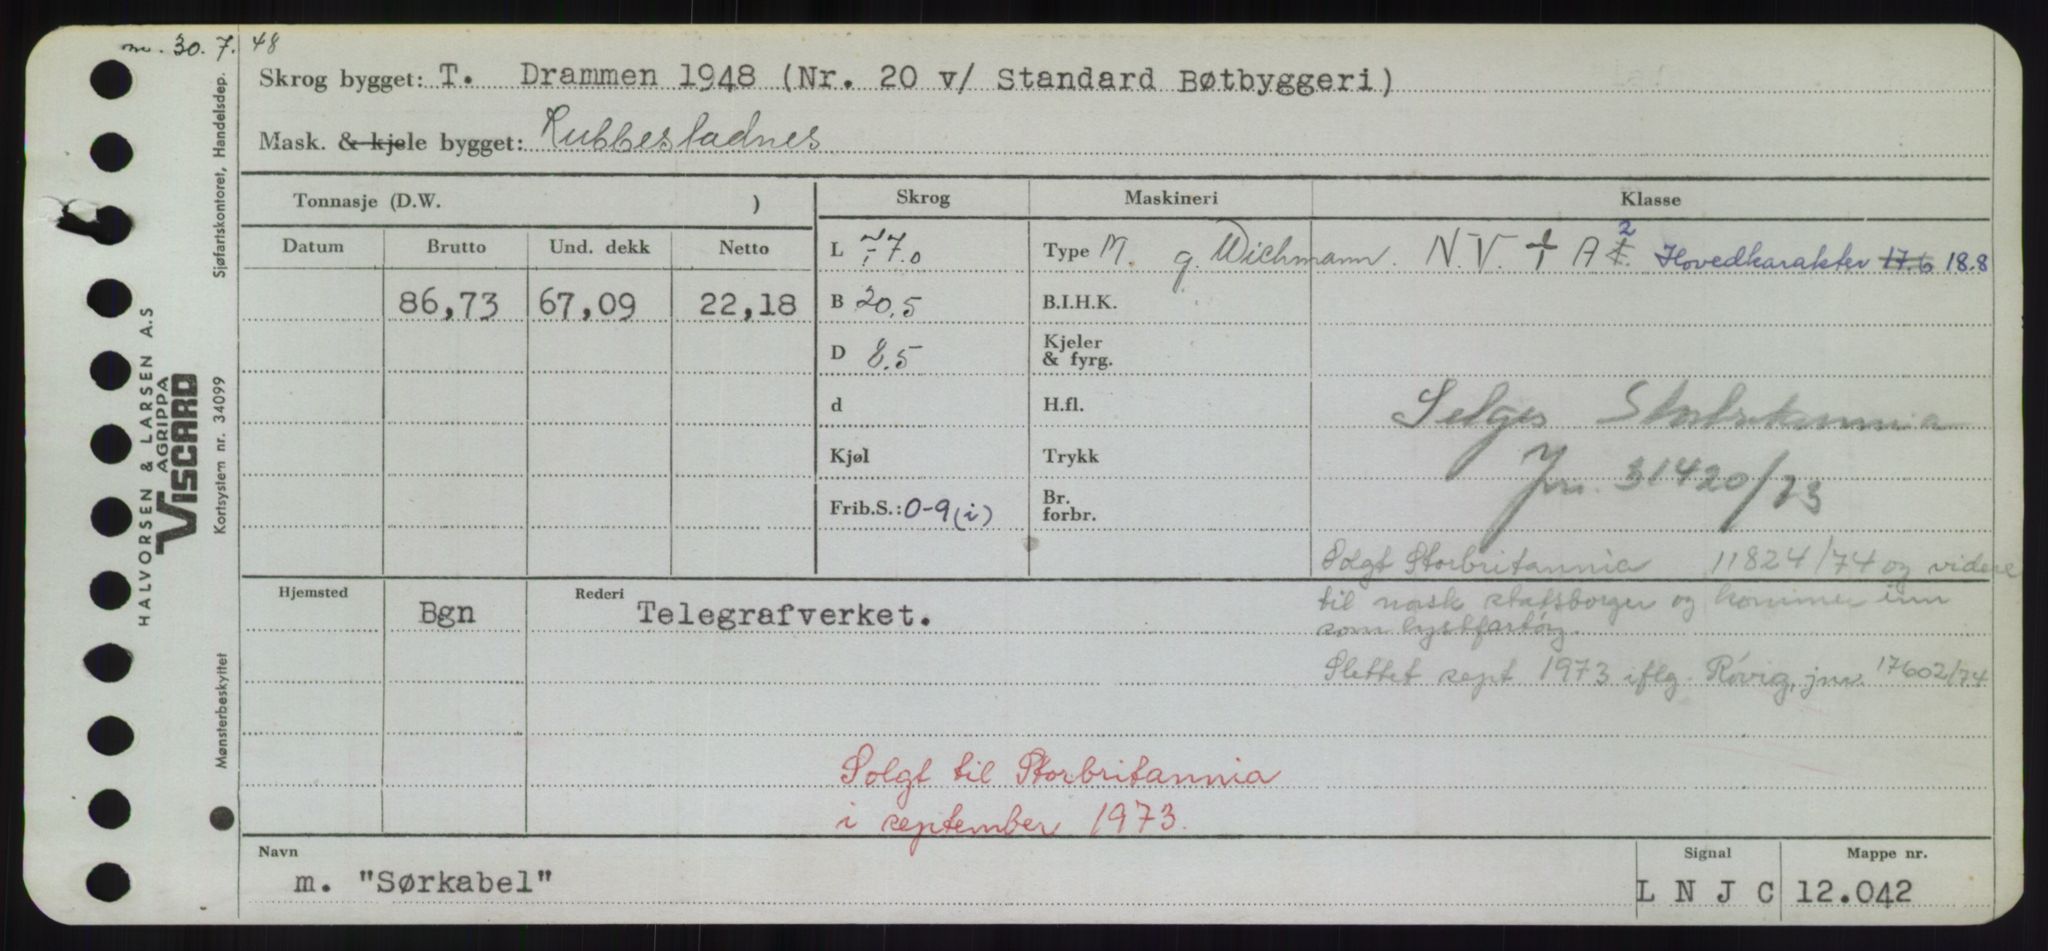 m. 30. 7. 48
Skrog bygget: T. Drammen 1948 (Nr. 20 v/ Standard Bøtbyggeri)
Mask. & kjele bygget: Rubbestadnes
Tonnasje (D.W. )
Skrog
Maskineri
Klasse
Datum Brutto Und. dekk Netto
L 77.0
Type M. g. Wichmann. N.V. + A 2 Hovedkarakter 17.6 18.8
86,73 67,09 22,18
B 20.5
B.I.H.K.
D 8.5
Kjeler
& fyrg.
d
H.fl.
Selges Storbritannia
Kjøl
Trykk
Jnr. 31420/73
Frib.S.: 0-9 (i)
Br.
forbr.
Solgt Storbritannia 11824/74 og videre
til norsk statsborger og kommer inn
som lystfartøy.
Slettet sept 1973 iflg. Rövig, jnr. 17602/74
Hjemsted
Bgn
Rederi
Telegrafverket.
Solgt til Storbritannia
i september 1973.
Navn
m. "Sørkabel"
Signal
L N J C
Mappe nr.
12.042
HALVORSEN & LARSEN A.S
AGRIPPA
VISCARD
Sjøfartskontoret, Handelsdep.
Kortsystem nr. 34099
Mønsterbeskyttet